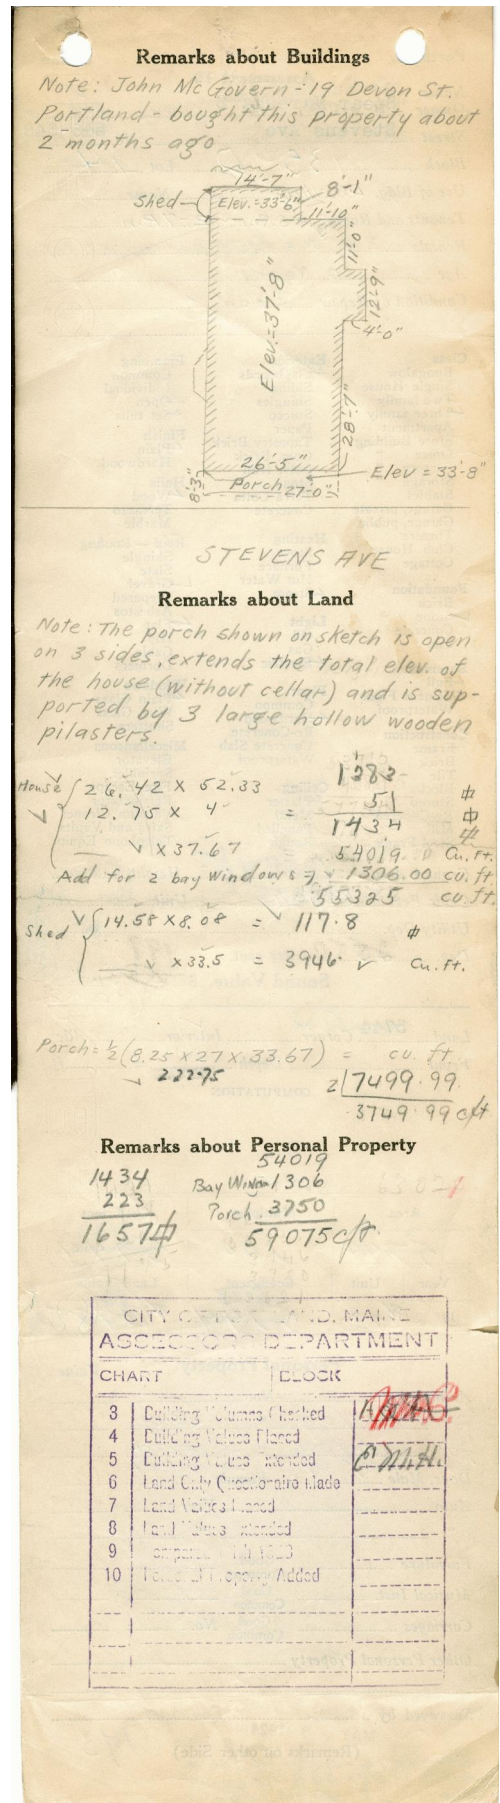 Remarks about Buildings
Note: John McGovern - 19 Devon St.
Portland - bought this property about
2 months ago
14'-7"
8'-1"
Shed
Elev.=33'-6"
11'-10"
11'-0"
Elev.=37'-8"
12'-9"
4'-0"
28'-7"
26'-5"
Elev = 33'-8"
8'-3"
Porch 27'-0"
STEVENS AVE
Remarks about Land
Note: The porch shown on sketch is open
on 3 sides, extends the total elev. of
the house (without cellar) and is sup-
ported by 3 large hollow wooden
pilasters.
House 26.42 X 52.33 1383
12.75 X 4 = 51
1434
X 37.67 54019 Cu. Ft.
Add for 2 bay windows 1306.00 cu. ft.
55325 cu ft.
Shed 14.58 X 8.08 = 117.8
X 33.5 = 3946. Cu. Ft.
Porch = 1/2 (8.25 X 27 X 33.67) = cu. ft.
222.75
2 7499.99
3749.99 c/ft
Remarks about Personal Property
54019
1434 Bay 1306
223 Porch 3750
1657 59075 c/ft.
CITY OF PORTLAND, MAINE
ASSESSORS DEPARTMENT
CHART BLOCK
3 Building Volumes Checked
4 Building Values Placed
5 Building Values Extended E.M.H.
6 Land Only Questionaire Made
7 Land Values Placed
8 Land Values Extended
9
10 Personal Property Added